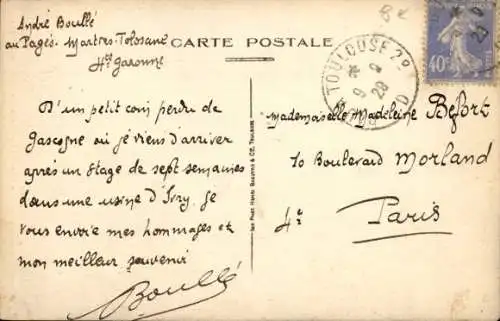 André Boullé
au Pagès. Martres-Tolosane
Hte Garonne
CARTE POSTALE
TOULOUSE
40c
D'un petit coin perdu de
Gascogne où je viens d'arriver
après un stage de sept semaines
dans une usine d'Ivry. Je
vous envoie mes hommages et
mon meilleur souvenir
Boullé
Mademoiselle Madeleine Befort
10 Boulevard Morland
4e
Paris